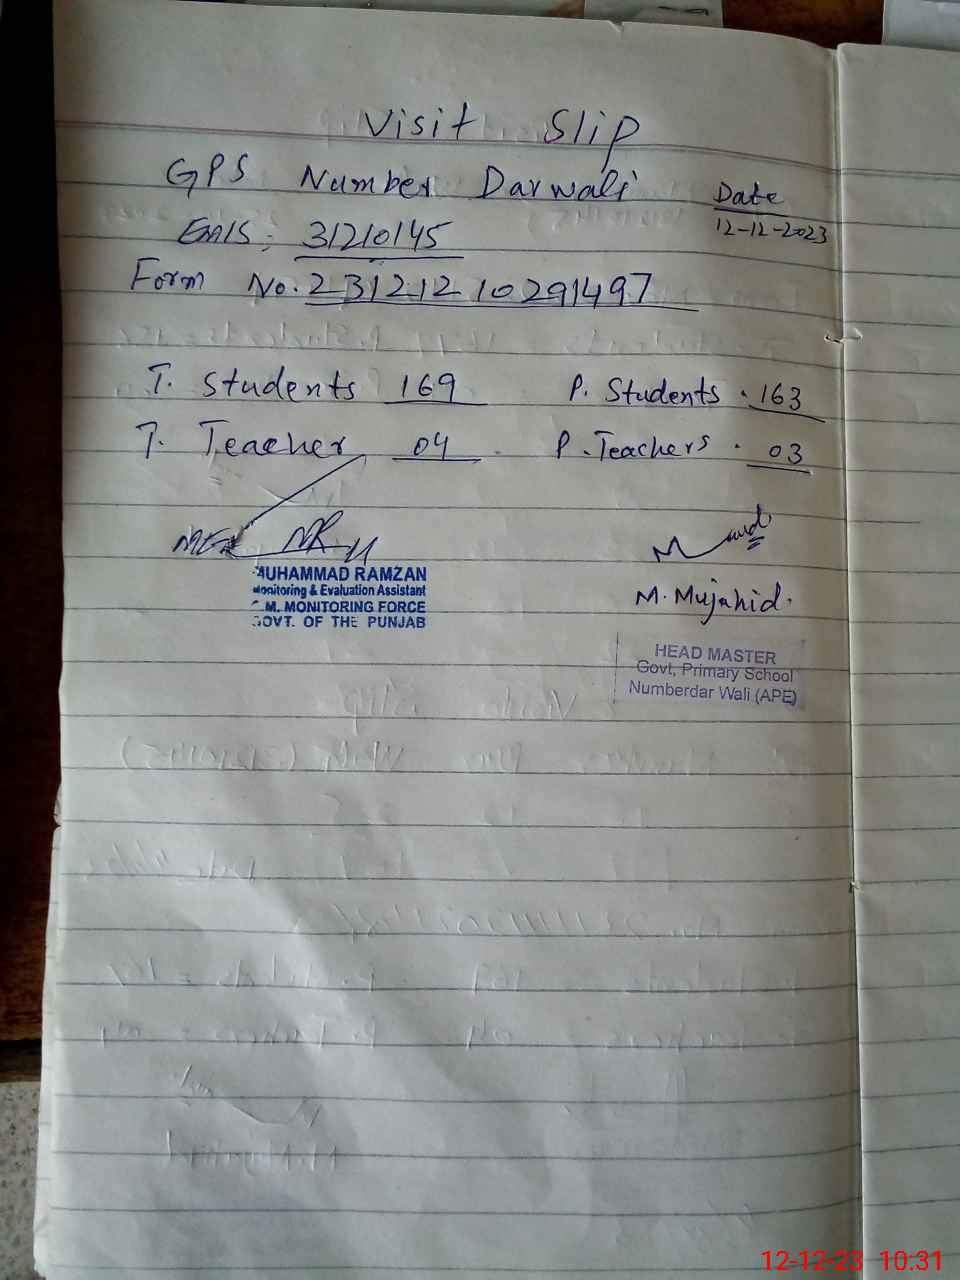 Visit Slip
GPS Number Darwali
Date
12-12-2023
EMIS: 31210145
Form No. 23121210291497
T. Students 169 P. Students . 163
T. Teacher 04 P. Teachers . 03
MUHAMMAD RAMZAN
Monitoring & Evaluation Assistant
C.M. MONITORING FORCE
GOVT. OF THE PUNJAB
M. Mujahid.
HEAD MASTER
Govt, Primary School
Numberdar Wali (APE)
12-12-23 10:31